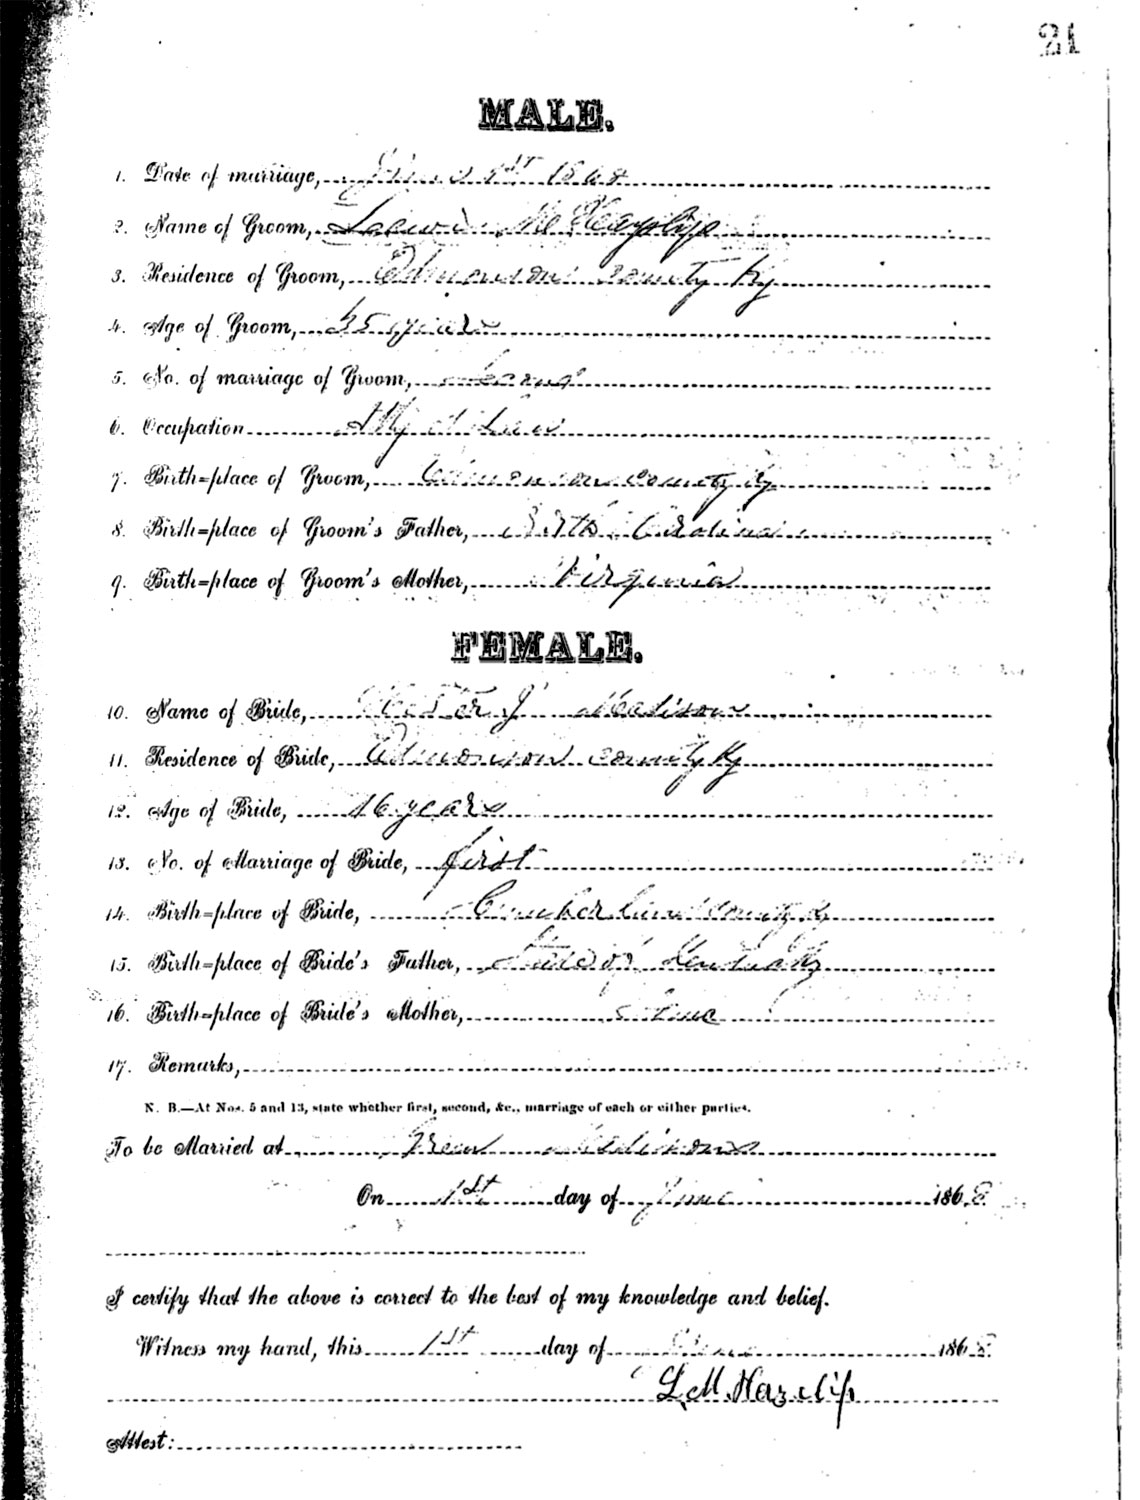 21
MALE.
1. Date of marriage, June 1st 1868
2. Name of Groom, M Hazelip
3. Residence of Groom, Edmonson county Ky
4. Age of Groom, years
5. No. of marriage of Groom,
6. Occupation Atty at Law
7. Birth=place of Groom, Edmonson county Ky
8. Birth=place of Groom's Father, North Carolina
9. Birth=place of Groom's Mother, Virginia
FEMALE.
10. Name of Bride, J Madison
11. Residence of Bride, Edmonson county Ky
12. Age of Bride, 16 years
13. No. of Marriage of Bride, first
14. Birth=place of Bride, Cumberland County Ky
15. Birth=place of Bride's Father, State of Kentucky
16. Birth=place of Bride's Mother, Same
17. Remarks,
N. B.—At Nos. 5 and 13, state whether first, second, &c., marriage of each or either parties.
To be Married at Madisons
On 1st day of June 1868.
I certify that the above is correct to the best of my knowledge and belief.
Witness my hand, this 1st day of June 1868.
L. M. Hazelip
Attest: